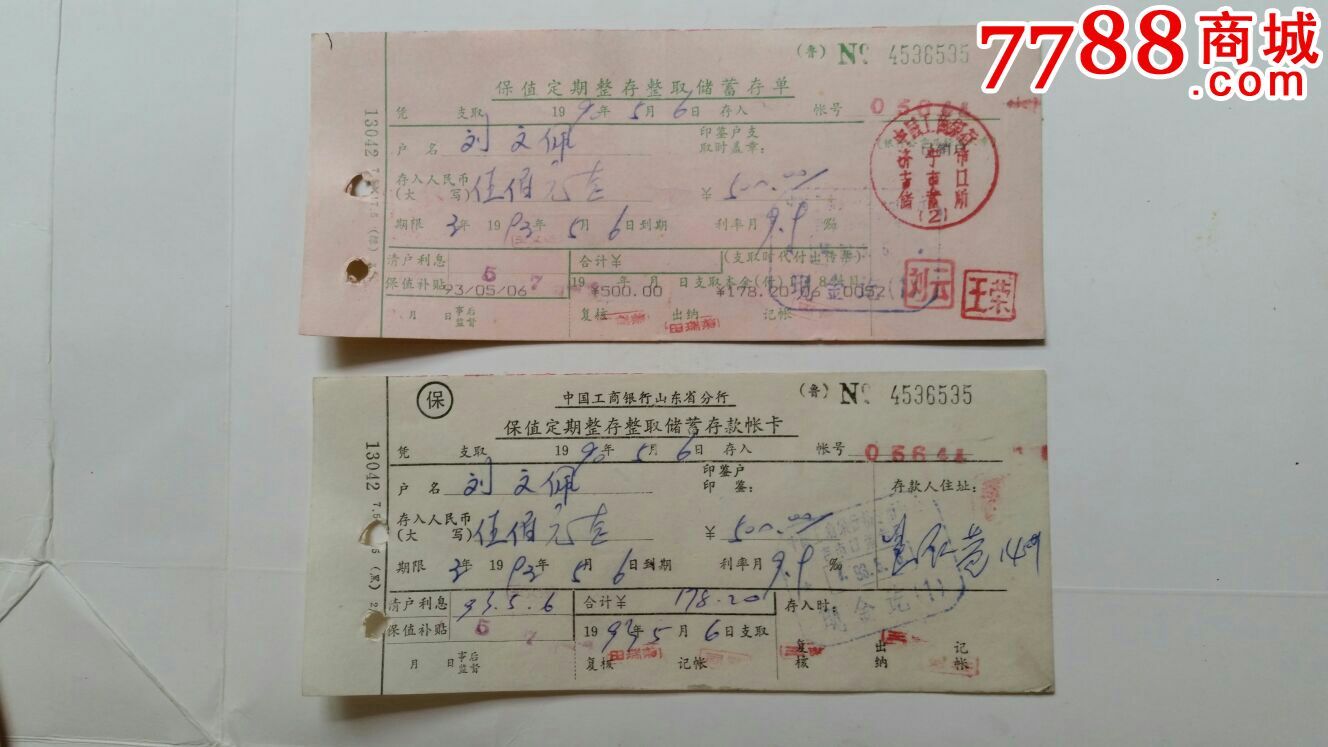 7788商城
.com
(鲁) № 4536535
保值定期整存整取储蓄存单
凭 支取 1990年5月6日 存入 帐号 05644
户名 刘文佩 印鉴户支取时盖章:
存入人民币(大写) 伍佰元 ¥500.00
期限 3年 1993年5月6日到期 利率月9.9‰
清户利息 合计¥ (支取时代付出传票)
保值补贴 93/05/06 ¥500.00 ¥178.20 06 0052
月 日 事后监督 复核 出纳 记帐
刘云 王荣
13042
(2)
保 中国工商银行山东省分行 (鲁) № 4536535
保值定期整存整取储蓄存款帐卡
凭 支取 1990年5月6日 存入 帐号 05644
户名 刘文佩 印鉴户印鉴: 存款人住址:
存入人民币(大写) 伍佰元 ¥500.00
期限 3年 1993年5月6日到期 利率月9.9‰
清户利息 93.5.6 合计¥ 178.20 存入时:
保值补贴 1993年5月6日支取
月 日 事后监督 复核 记帐 复核 出纳 记帐
13042
现金讫(1)